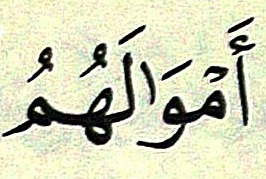 أَمْوَالَهُمُ